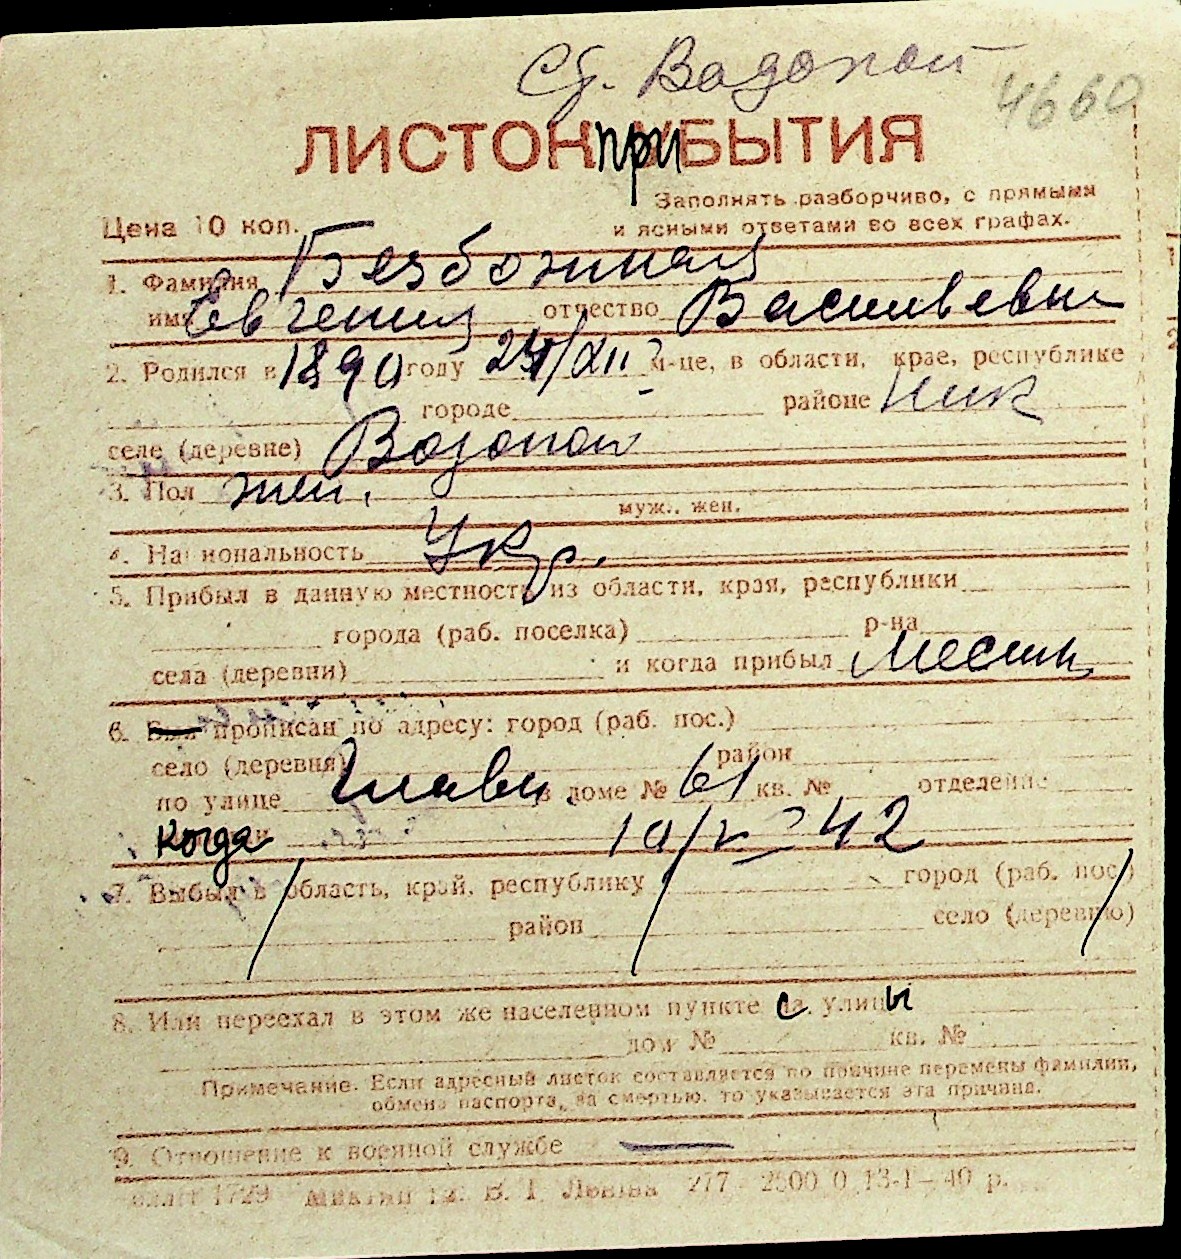 Ст. Водопой
4660
ЛИСТОК прИБЫТИЯ
Заполнять разборчиво, с прямыми
Цена 10 коп. и ясными ответами во всех графах.
1. Фамилия Безбожная
имя Евгения отчество Васильевн
2. Родился в 1890 году 24/XII м-це, в области, крае, республике
городе районе Ник
селе (деревне) Водопой
3. Пол жен.
муж., жен.
4. Национальность Укр.
5. Прибыл в данную местность из области, края, республики
города (раб. поселка) р-на
села (деревни) и когда прибыл Местн
6. Был прописан по адресу: город (раб. пос.)
село (деревня) район
по улице Главн. в доме № 61 кв. № отделение
когда 10/V 42
7. Выбыл в область, край, республику город (раб. пос.)
район село (деревню)
8. Или переехал в этом же населенном пункте с улицы
дом № кв. №
Примечание. Если адресный листок составляется по причине перемены фамилии,
обмена паспорта, за смертью, то указывается эта причина.
9. Отношение к военной службе —
1729 В. І. Леніна 277 2500 0 13-I-40 р.